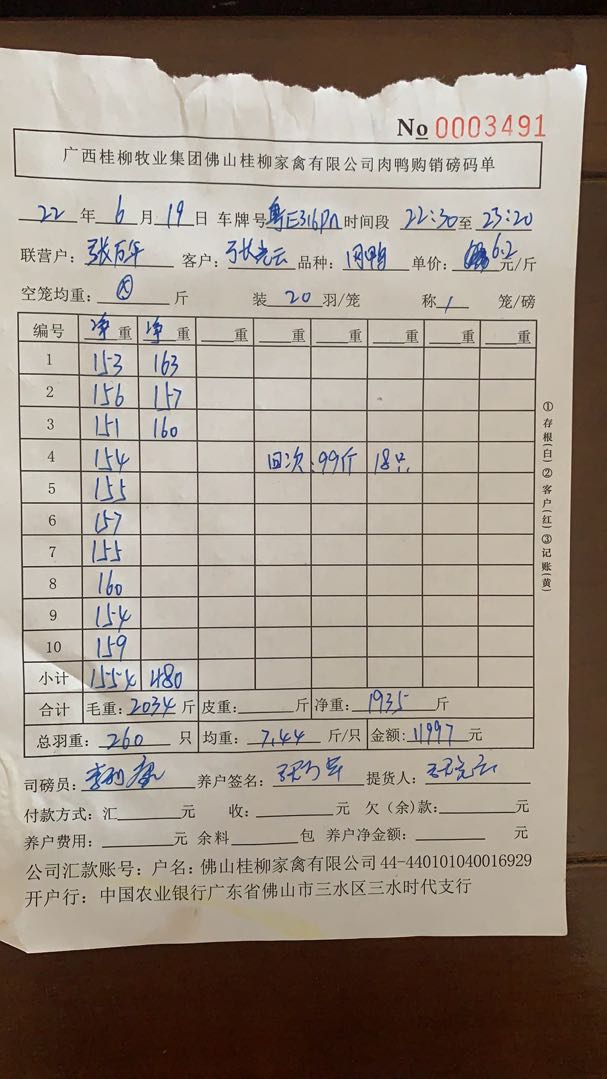 No 0003491
广西桂柳牧业集团佛山桂柳家禽有限公司肉鸭购销磅码单
22 年 6 月 19 日 车牌号 粤E316 时间段 22:30 至 23:20
联营户: 张万年 客户: 张光云 品种: 肉鸭 单价: 6.2 元/斤
空笼均重: 斤 装 20 羽/笼 称 1 笼/磅
编号 净重 净重 重 重 重 重 重 重
1 153 163
2 156 157
3 151 160
4 154 回次:99斤 18只
5 155
6 157
7 155
8 160
9 154
10 159
小计 1554 480
合计 毛重: 2034 斤 皮重: 斤 净重: 1935 斤
总羽重: 260 只 均重: 7.44 斤/只 金额: 11997 元
司磅员: 养户签名: 提货人:
付款方式: 汇 元 收: 元 欠(余)款: 元
养户费用: 元 余料 包 养户净金额: 元
公司汇款账号: 户名: 佛山桂柳家禽有限公司 44-440101040016929
开户行: 中国农业银行广东省佛山市三水区三水时代支行
①存根(白)②客户(红)③记账(黄)